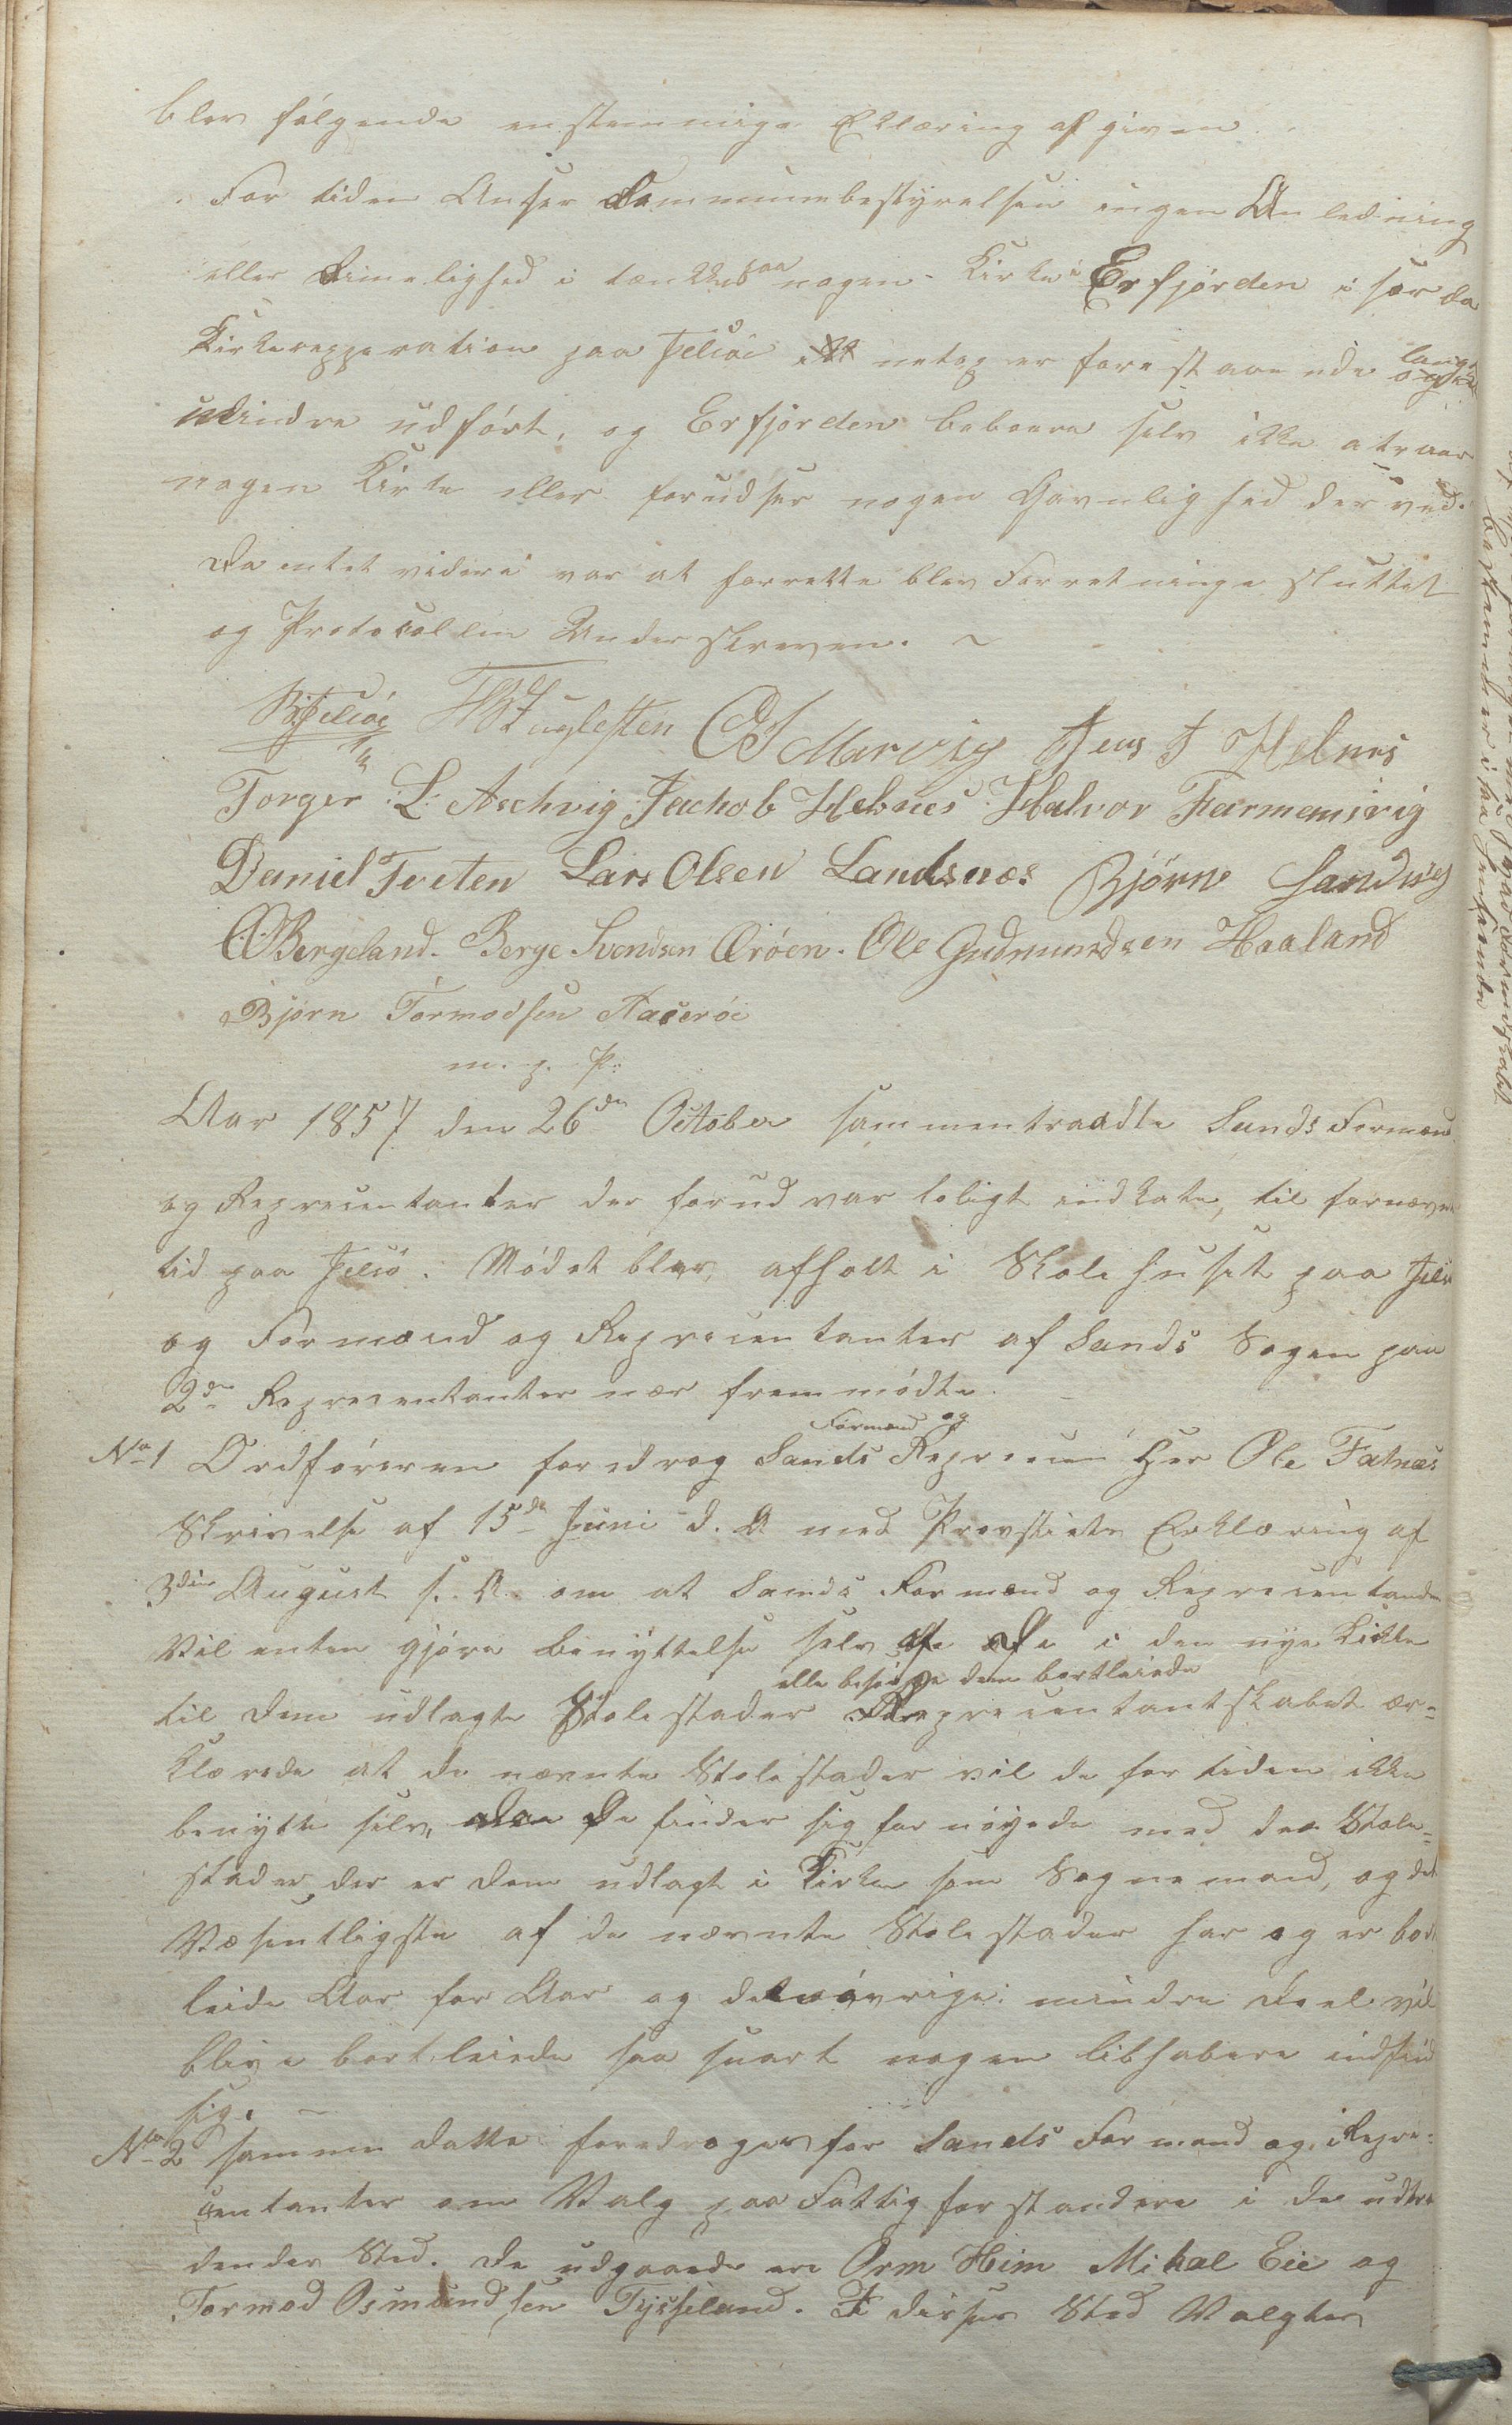 blev følgende enstemmige Erklæring afgiven.
For tiden Anser Communebestyrelsen ingen Anledning
eller Rimelighed i tænkes paa nogen Kirke i Erfjørden i sær da
Kirkereparation paa Jelsøe netop er forestaaende langt
mindre udført, og Erfjørden beboere selv ikke atraar
nogen Kirke eller forudser nogen Gavnlighed derved.
Da intet videre var at forrette blev Forretninge sluttet
og Protocollen Underskreven. ~
B. Jelsøe Fuglesten O J Marvig Jens J Hebnes
Torger L. Aschvig Jachob Hebnes Halvor
Daniel Tveten Lars Olsen Landsnæs Bjørn Sandvig
O Bergeland. Berge Svendsen Ørøen. Ole Gudmundsen Haaland
Bjørn Tormodsen
m. p. P.
Aar 1857 den 26de October sammentraadte Sands Formænd
og Representanter der forud var loligt indkate, til fornævnte
tid paa Jelsø. Mødet blev afholt i Skolehuset paa Jelsø
og Formænd og Representanter af Sands Sogen paa
2de Representanter nær fremmødte.
No 1 Ordføreren foredrog Sands Formænd og Represen Her Ole Fatnæs
Skrivelse af 15de Juni d. A med Provstiets Erklæring af
3die August s. A. om at Sands Formænd og Representander
Vil enten gjøre Benyttelse selv af de i den nye Kirke
til dem udlagte Stolestader elle besørge dem bortleiede Representantskabet er=
klærede at de nævnte Stolestader vil de for tiden ikke
benytte selv, da de finder sig fornøyede med de Stole=
stader, der er dem udlagt i Kirken som Sognemænd, og det
Væsentligste af de nævnte Stolestader har og er bort
leide Aar for Aar og det øvrige mindre Deel vil
blive bortleiede saa snart nogen libhabere indfind
sig.
No 2 sammen datto foredroges for Sands Formænd og Repre=
sentanter om Valg paa Fattigforstandere i de udtræ
dendes Sted. De udgaaede ere Orm Heim Mikal Eie og
Tormod Osmundsen Tysseland. I disses Sted Valgtes